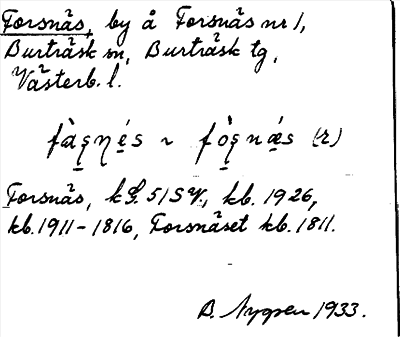 Forsnäs, by å Forsnäs nr 1,
Burträsk sn, Burträsk tg,
Västerb. l.
fàs̠n̠é̠s ~ fò̠s̠nǽ̠s (r)
Forsnäs, k G. 51 SV., kb. 1926,
kb. 1911-1816, Forsnäset kb. 1811.
B. Nygren 1933.